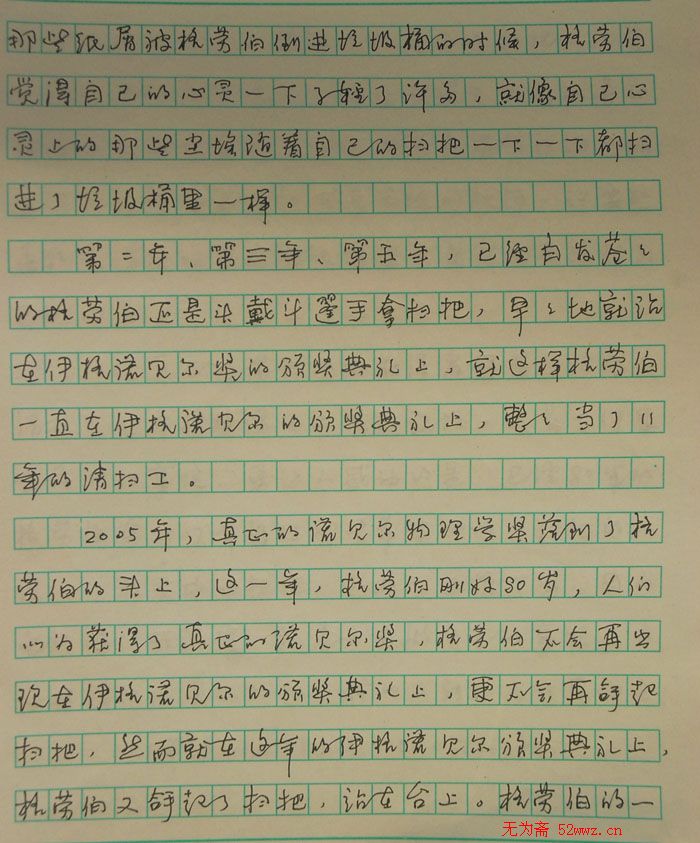 那些纸屑被格劳伯倒进垃圾桶的时候，格劳伯
觉得自己的心灵一下子轻了许多，就像自己心
灵上的那些尘埃随着自己的扫把一下一下都扫
进了垃圾桶里一样。
第二年、第三年、第五年，已经白发苍々
的格劳伯还是头戴斗笠手拿扫把，早々地就站
在伊格诺贝尔奖的颁奖典礼上，就这样格劳伯
一直在伊格诺贝尔的颁奖典礼上，整々当了11
年的清扫工。
2005年，真正的诺贝尔物理学奖落到了格
劳伯的头上，这一年，格劳伯刚好80岁，人们
以为获得了真正的诺贝尔奖，格劳伯不会再出
现在伊格诺贝尔的颁奖典礼上，更不会再拿起
扫把，然而就在这年的伊格诺贝尔颁奖典礼上，
格劳伯又拿起了扫把，站在台上。格劳伯的一
无为斋 52wwz.cn